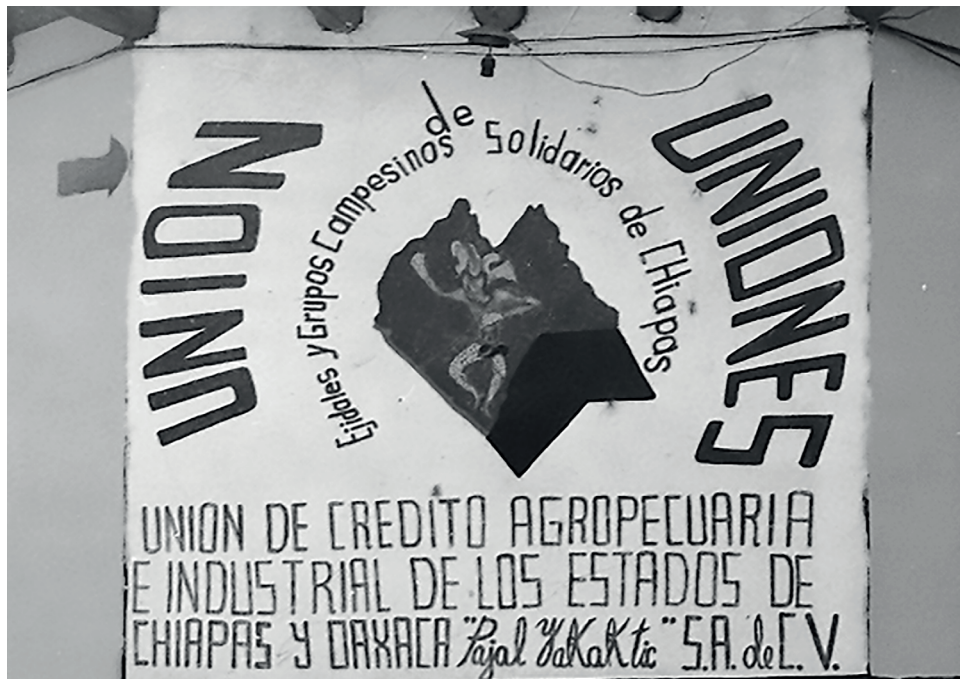 UNION de UNIONES
Ejidales y Grupos Campesinos Solidarios de CHiapas
UNION DE CREDITO AGROPECUARIA
E INDUSTRIAL DE LOS ESTADOS DE
CHIAPAS Y OAXACA "Pajal YaKaKtic" S.A. de C.V.